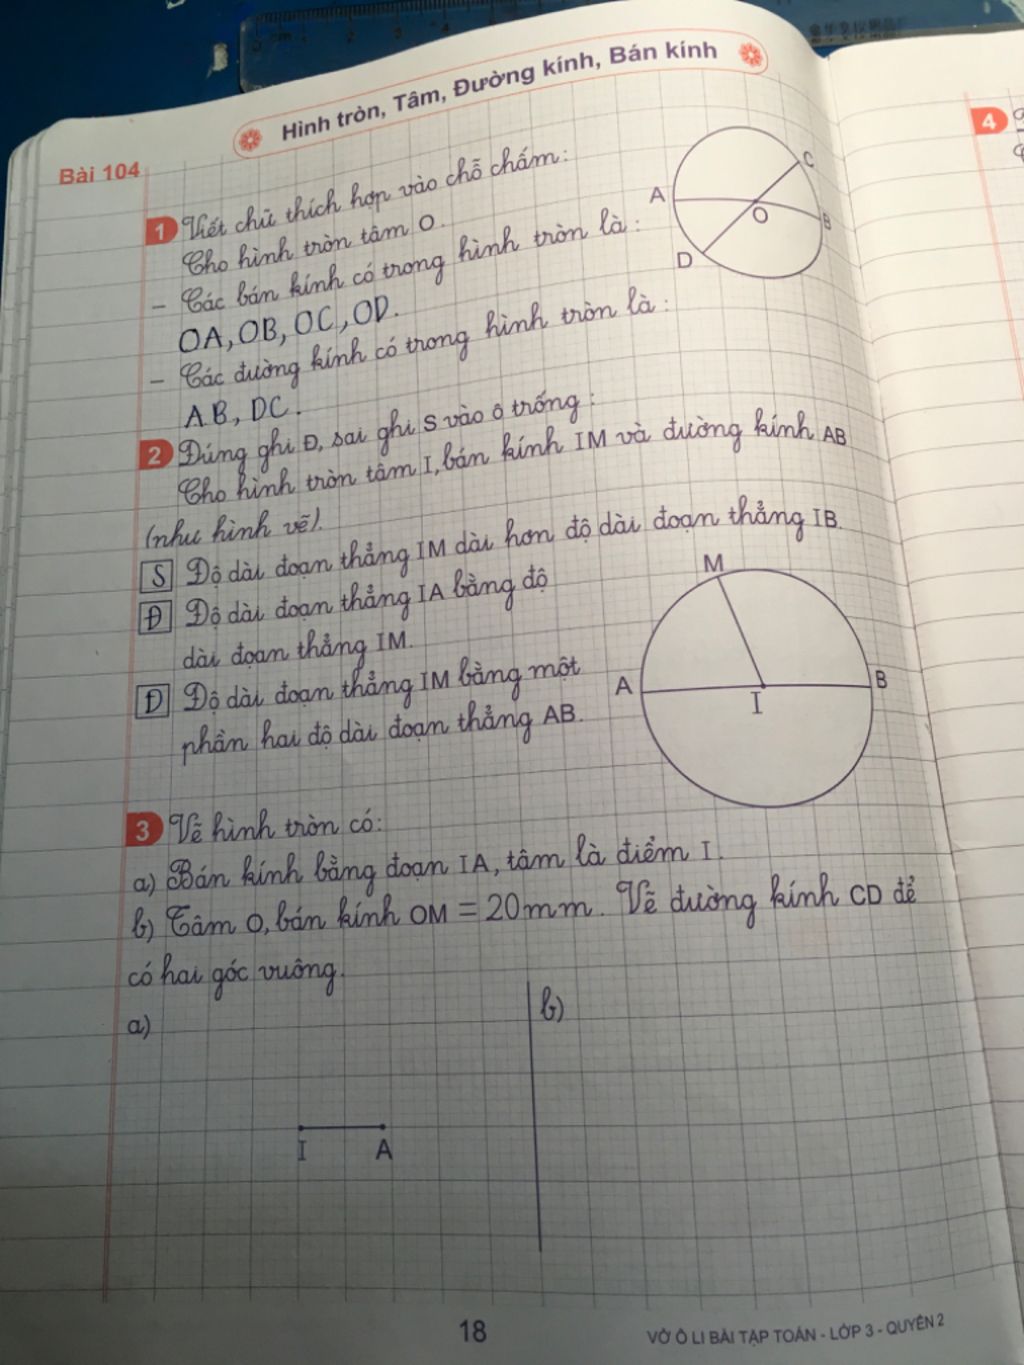 Hình tròn, Tâm, Đường kính, Bán kính
Bài 104
1 Viết chữ thích hợp vào chỗ chấm:
Cho hình tròn tâm O.
- Các bán kính có trong hình tròn là:
OA, OB, OC, OD.
- Các đường kính có trong hình tròn là:
AB, DC.
A
C
O
B
D
2 Đúng ghi Đ, sai ghi S vào ô trống:
Cho hình tròn tâm I, bán kính IM và đường kính AB
(như hình vẽ).
S Độ dài đoạn thẳng IM dài hơn độ dài đoạn thẳng IB.
Đ Độ dài đoạn thẳng IA bằng độ
dài đoạn thẳng IM.
Đ Độ dài đoạn thẳng IM bằng một
phần hai độ dài đoạn thẳng AB.
M
A
I
B
3 Vẽ hình tròn có:
a) Bán kính bằng đoạn IA, tâm là điểm I.
b) Tâm O, bán kính OM = 20mm. Vẽ đường kính CD để
có hai góc vuông.
a)
b)
I A
18
VỞ Ô LI BÀI TẬP TOÁN - LỚP 3 - QUYỂN 2
4